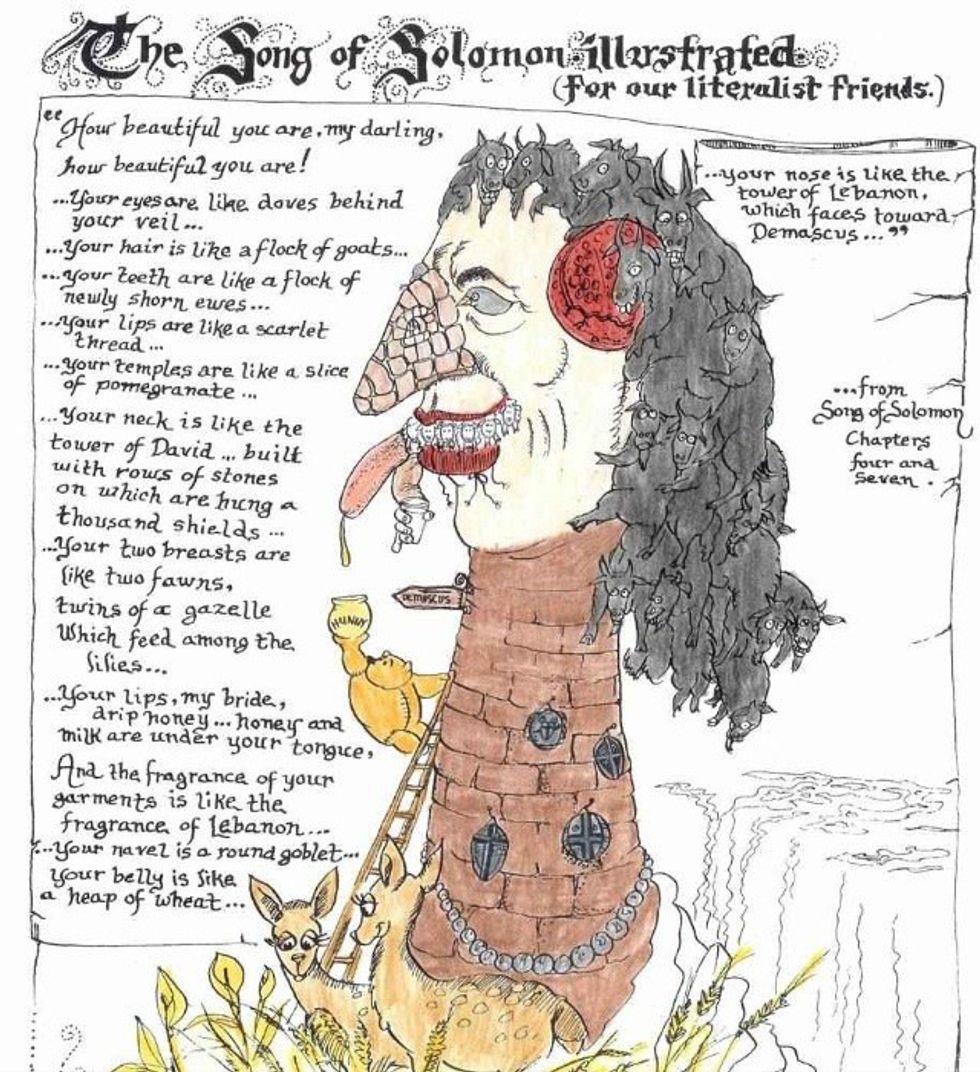 The Song of Solomon illustrated
(for our literalist friends.)
"How beautiful you are, my darling,
how beautiful you are!
...Your eyes are like doves behind
your veil...
...Your hair is like a flock of goats...
...Your teeth are like a flock of
newly shorn ewes...
...Your lips are like a scarlet
thread...
...Your temples are like a slice
of pomegranate...
...Your neck is like the
tower of David... built
with rows of stones
on which are hung a
thousand shields...
...Your two breasts are
like two fawns,
twins of a gazelle
Which feed among the
lilies...
...Your lips, my bride,
drip honey... honey and
milk are under your tongue,
And the fragrance of your
garments is like the
fragrance of Lebanon...
...Your navel is a round goblet...
Your belly is like
a heap of wheat...
...your nose is like the
tower of Lebanon,
which faces toward
Demascus..."
...from
Song of Solomon
Chapters
four and
Seven.
DEMASCUS
HUNNY